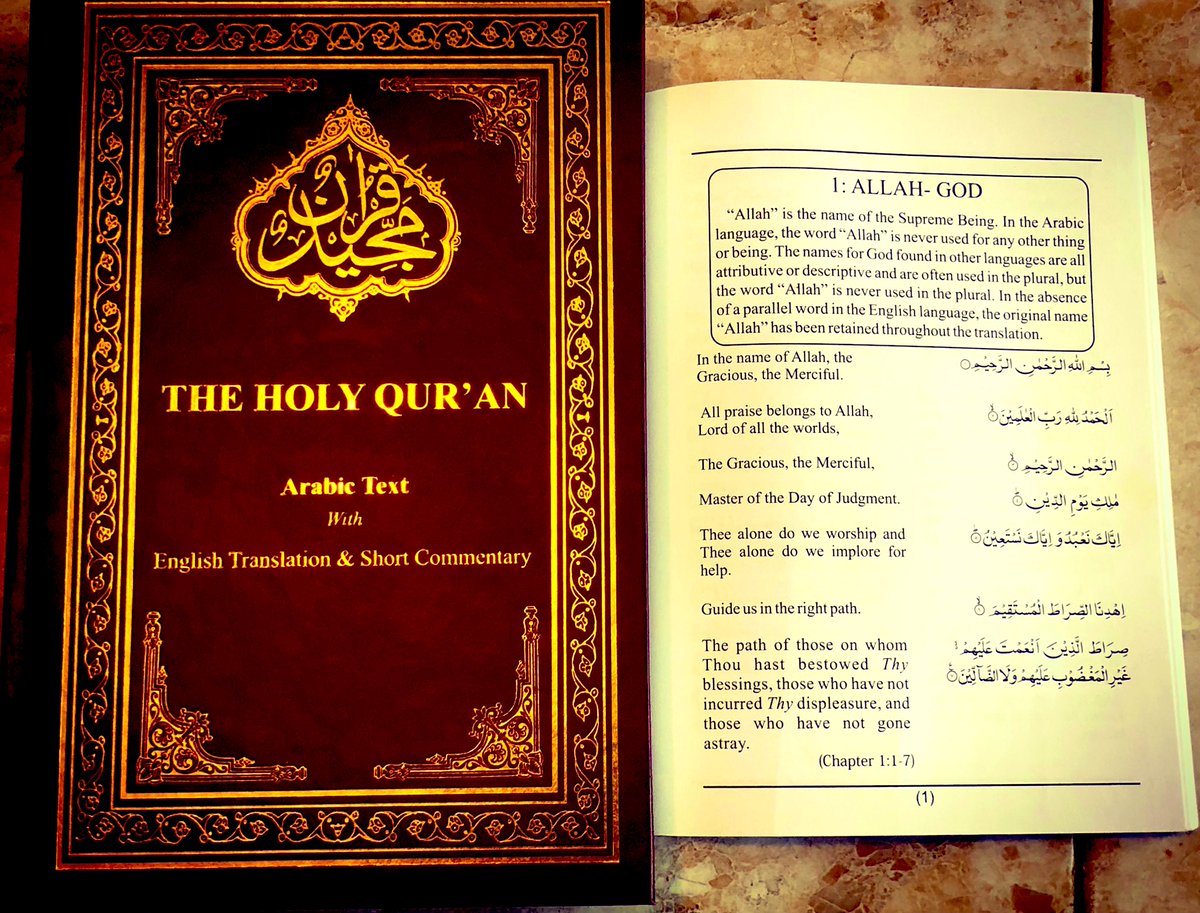 قرآن مجيد
THE HOLY QUR’AN
Arabic Text
With
English Translation & Short Commentary
1: ALLAH- GOD
“Allah” is the name of the Supreme Being. In the Arabic
language, the word “Allah” is never used for any other thing
or being. The names for God found in other languages are all
attributive or descriptive and are often used in the plural, but
the word “Allah” is never used in the plural. In the absence
of a parallel word in the English language, the original name
“Allah” has been retained throughout the translation.
In the name of Allah, the
Gracious, the Merciful.
بِسْمِ اللّٰهِ الرَّحْمٰنِ الرَّحِيْمِ
All praise belongs to Allah,
Lord of all the worlds,
اَلْحَمْدُ لِلّٰهِ رَبِّ الْعٰلَمِيْنَ
The Gracious, the Merciful,
الرَّحْمٰنِ الرَّحِيْمِ
Master of the Day of Judgment.
مٰلِكِ يَوْمِ الدِّيْنِ
Thee alone do we worship and
Thee alone do we implore for
help.
اِيَّاكَ نَعْبُدُ وَ اِيَّاكَ نَسْتَعِيْنُ
Guide us in the right path.
اِهْدِنَا الصِّرَاطَ الْمُسْتَقِيْمَ
The path of those on whom
Thou hast bestowed Thy
blessings, those who have not
incurred Thy displeasure, and
those who have not gone
astray.
صِرَاطَ الَّذِيْنَ اَنْعَمْتَ عَلَيْهِمْ
غَيْرِ الْمَغْضُوْبِ عَلَيْهِمْ وَلَا الضَّآلِّيْنَ
(Chapter 1:1-7)
(1)